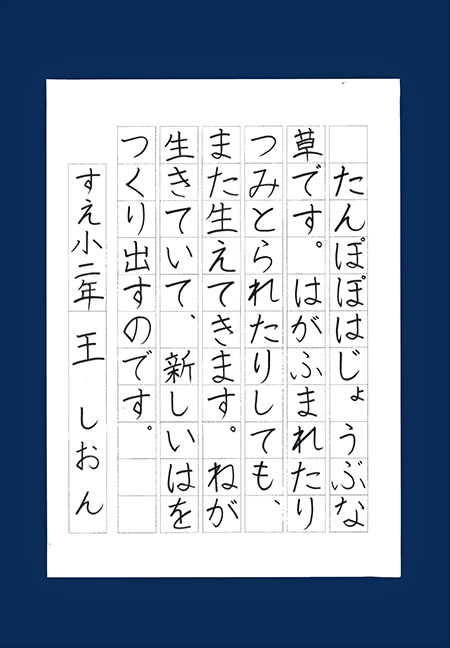 たんぽぽはじょうぶな
草です。はがふまれたり
つみとられたりしても、
また生えてきます。ねが
生きていて、新しいはを
つくり出すのです。
すえ小二年 王 しおん